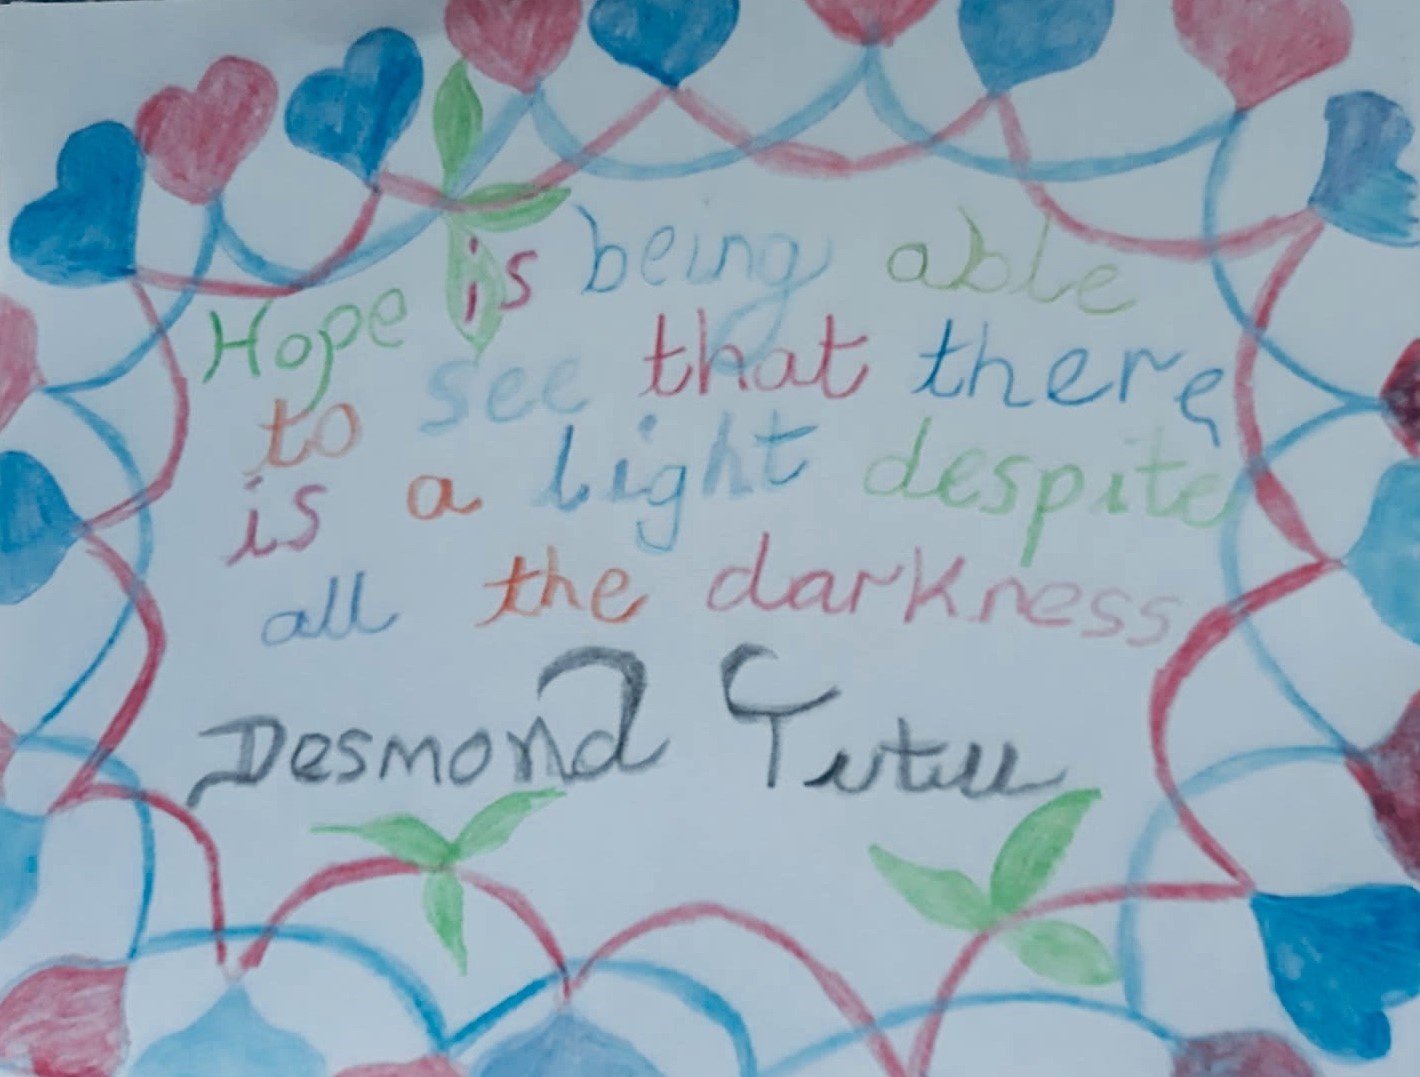 Hope is being able
to see that there
is a light despite
all the darkness
Desmond Tutu